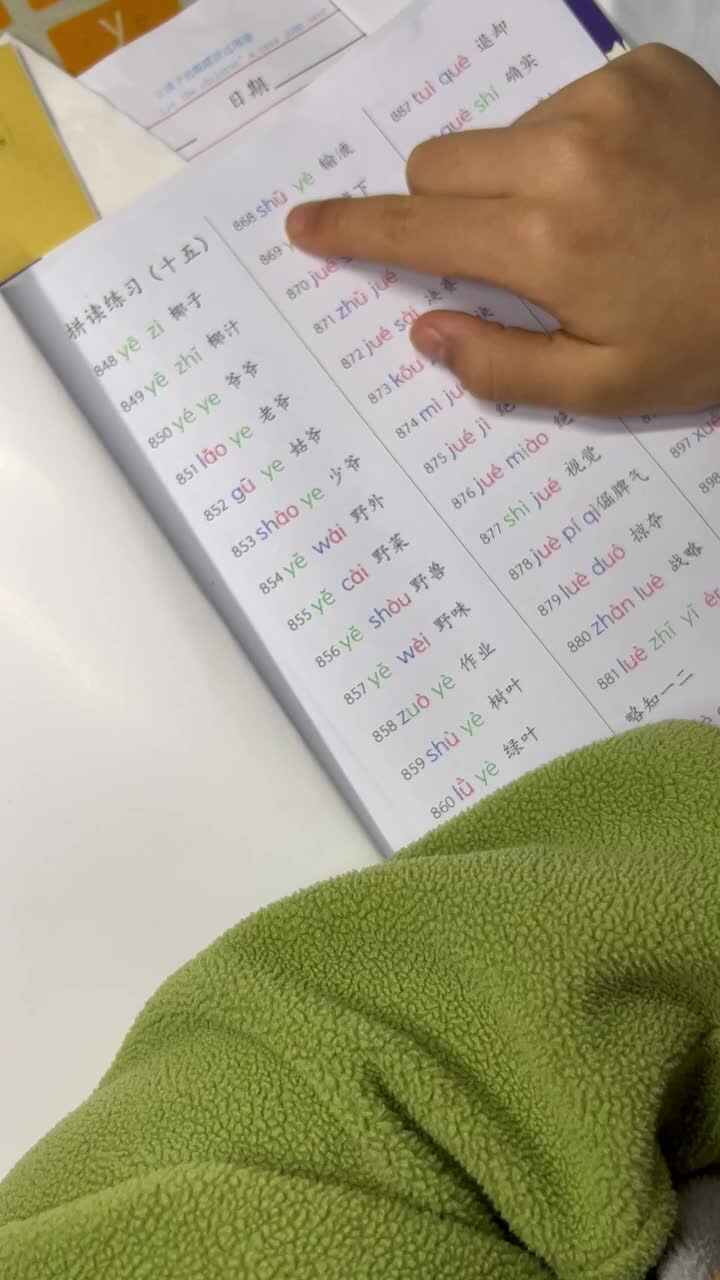 y
日期
拼读练习(十五)
848 yē zi 椰子
849 yē zhī 椰汁
850 yé ye 爷爷
851 lǎo ye 老爷
852 gū ye 姑爷
853 shào ye 少爷
854 yě wài 野外
855 yě cài 野菜
856 yě shòu 野兽
857 yě wèi 野味
858 zuò yè 作业
859 shù yè 树叶
860 lǜ yè 绿叶
868 shū yè 输液
869 下
870 jué
871 zhǔ jué
872 jué sài 决赛
873 kǒu 决
874 mì
875 jué jì 绝
876 jué miào 绝
877 shì jué 视觉
878 juè pí qi 倔脾气
879 lüè duó 掠夺
880 zhàn lüè 战略
881 lüè zhī yī èr
略知一二
887 tuì què 退却
què shí 确实
897
898